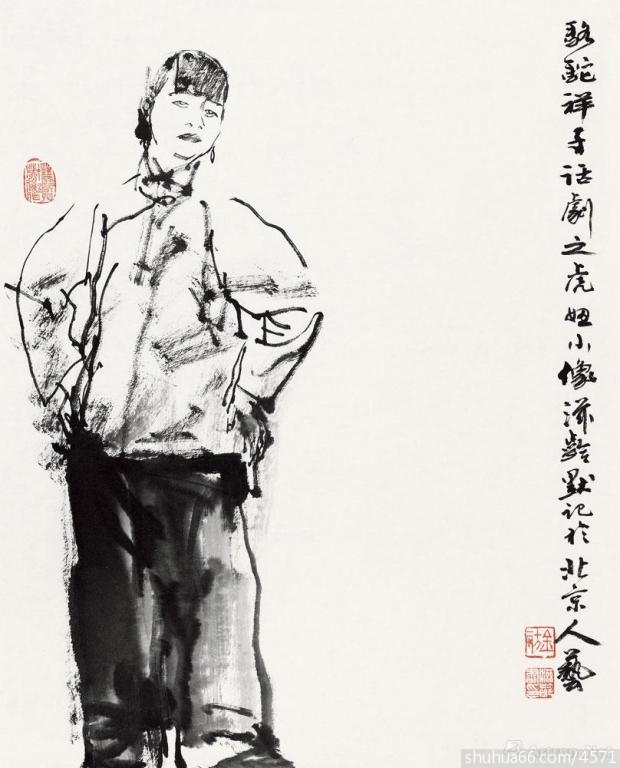 駱駝祥子话劇之虎妞小像海齡默记於北京人藝
shuhua66.com/4571